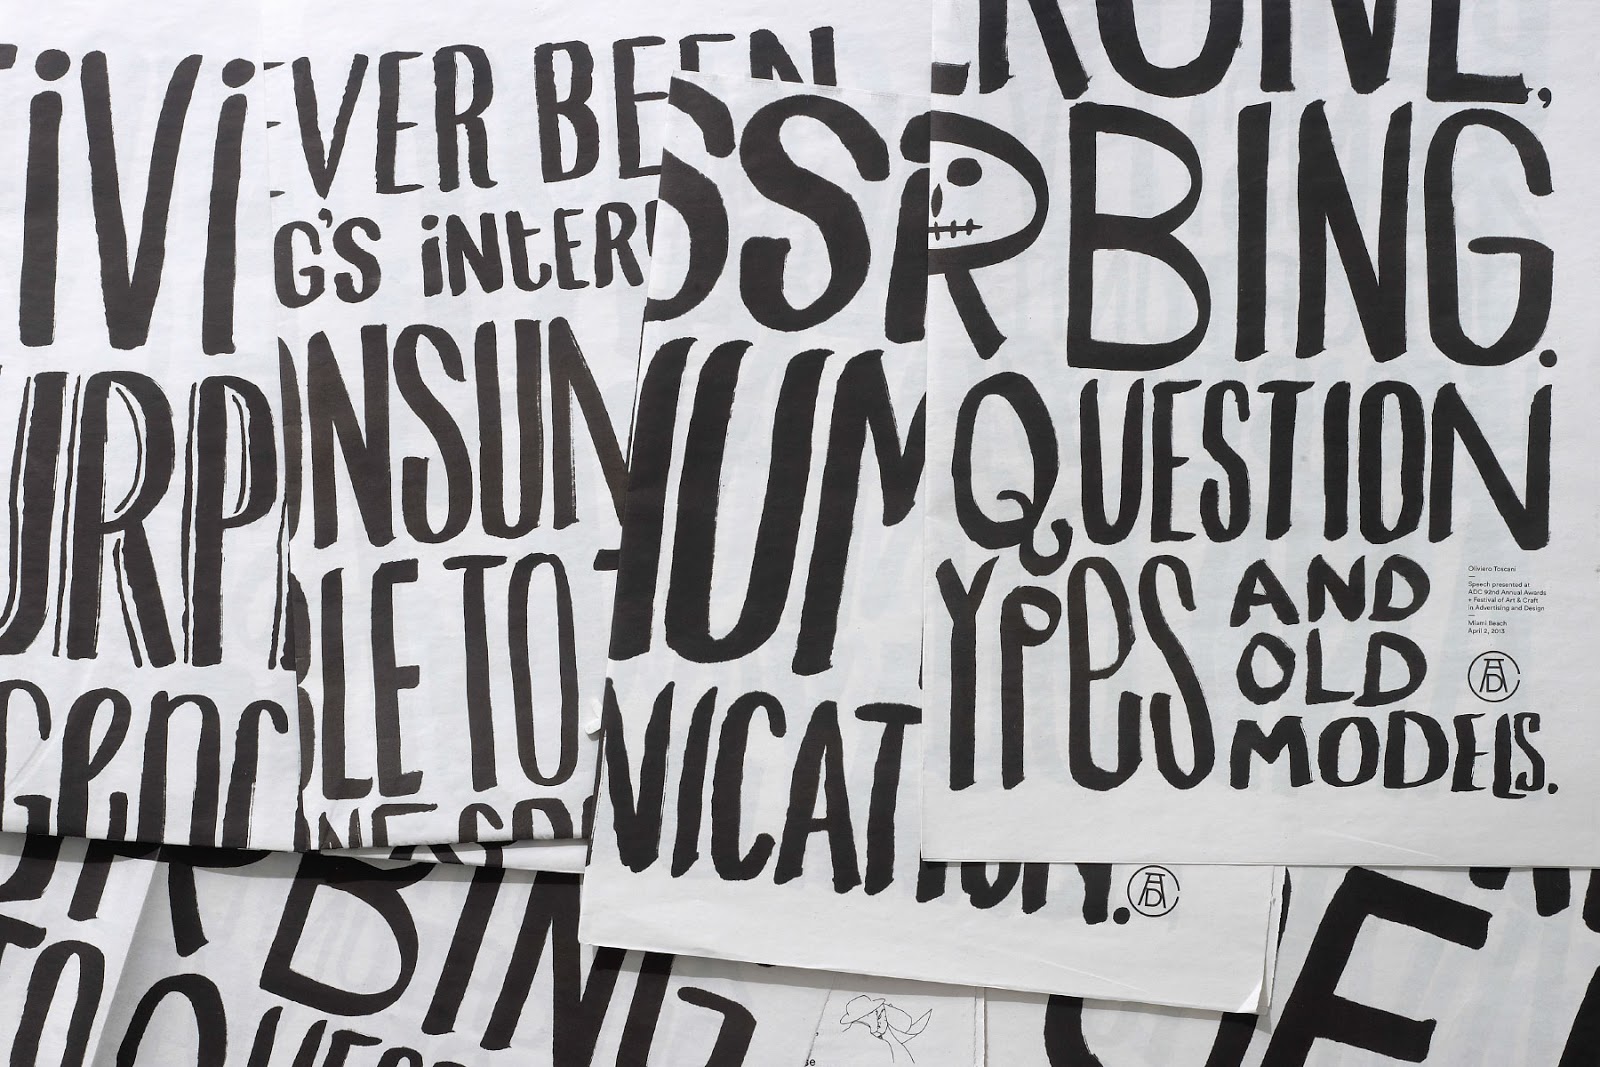 TIVI
URP
GENC
EVER BEEN
G'S INTER
ONSUM
BLE TO
NE SP
SSR
HUM
NICATION.
RONE,
RBING.
QUESTION
YPES AND
OLD
MODELS.
Oliviero Toscani
Speech presented at
ADC 92nd Annual Awards
+ Festival of Art & Craft
in Advertising and Design
Miami Beach
April 2, 2013
ADC
ADC
RBIN
TO
QUEST
se